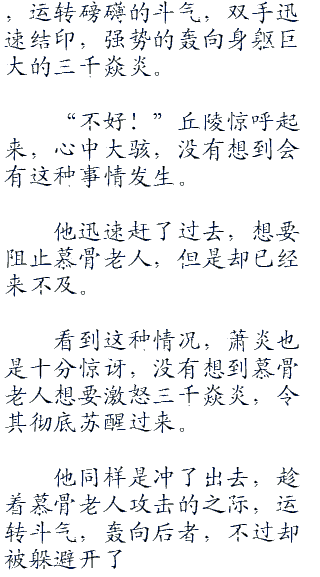 ，运转磅礴的斗气，双手迅
速结印，强势的轰向身躯巨
大的三千焱炎。
“不好！”丘陵惊呼起
来，心中大骇，没有想到会
有这种事情发生。
他迅速赶了过去，想要
阻止慕骨老人，但是却已经
来不及。
看到这种情况，萧炎也
是十分惊讶，没有想到慕骨
老人想要激怒三千焱炎，令
其彻底苏醒过来。
他同样是冲了出去，趁
着慕骨老人攻击的之际，运
转斗气，轰向后者，不过却
被躲避开了